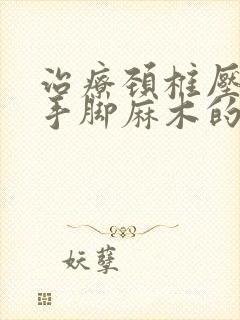 治療頚椎壓
手脚麻木的
妖孽